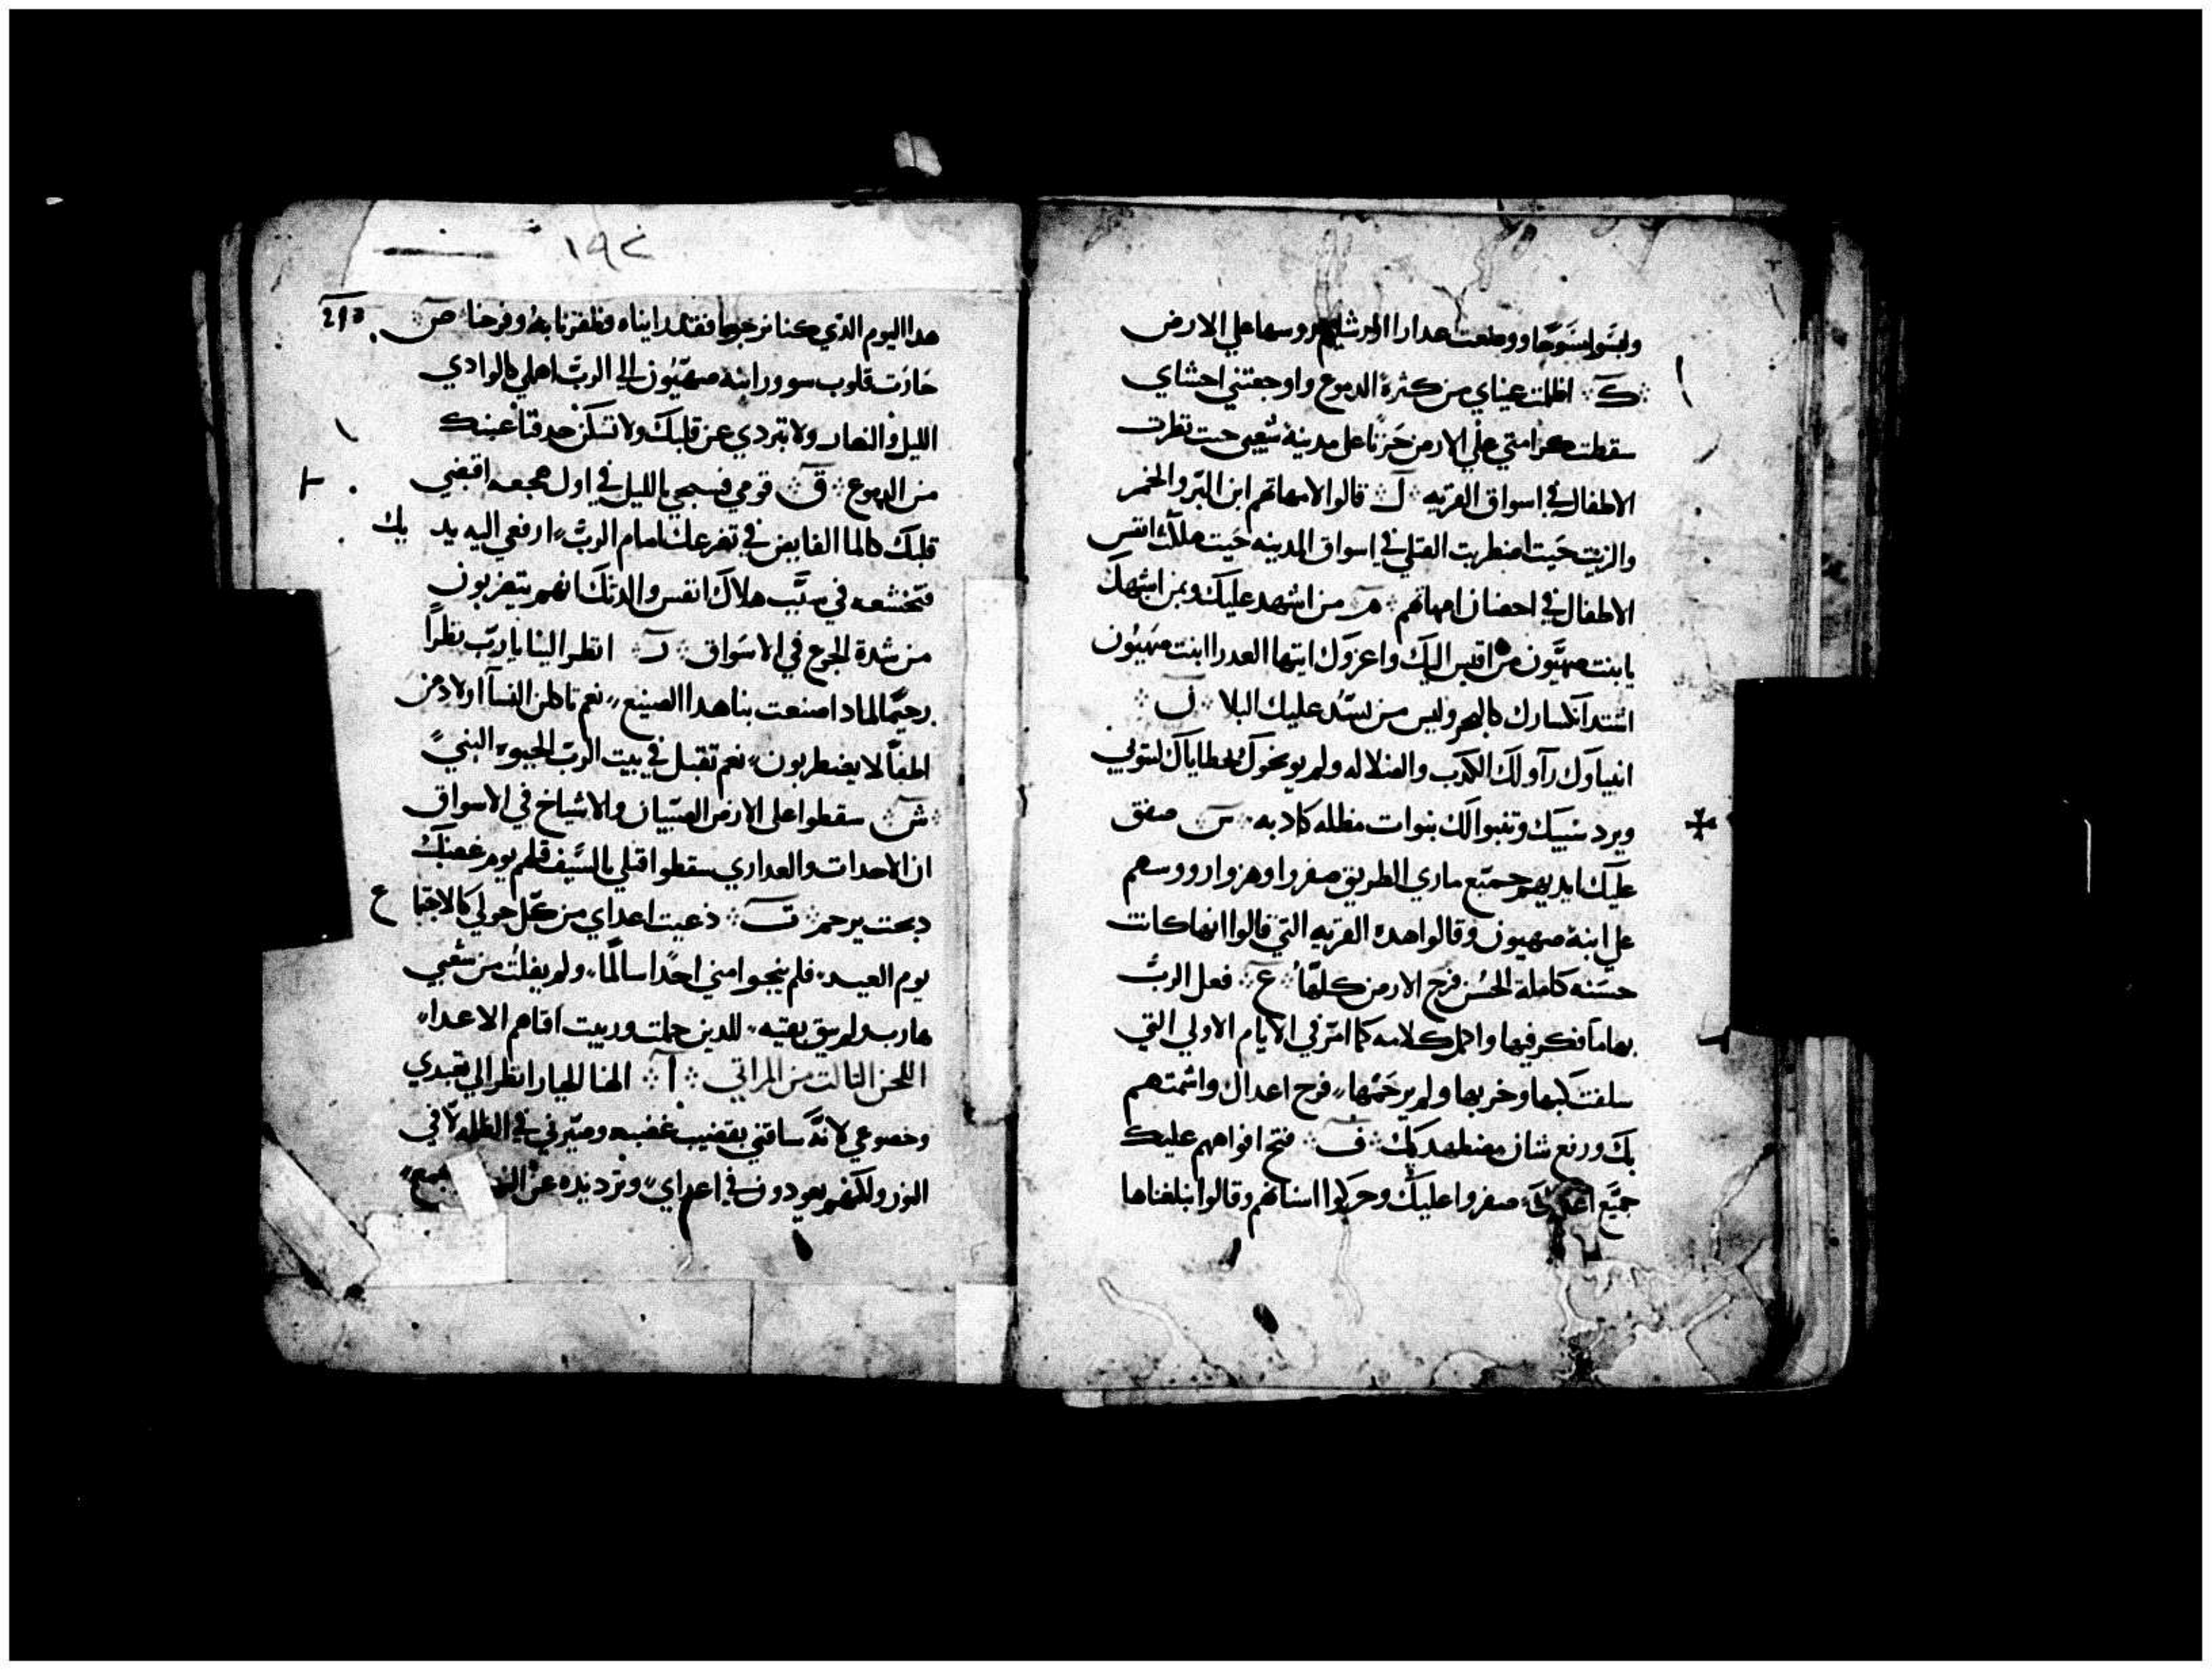 ولبسوا مسوحًا ووضعت عدارا اورشليم روسها علي الارض
ك اظلمت عيناي من كثرة الدموع واوجعتني احشاي
سقطت كرامتي علي الارض حزنًا علي مدينة شعبي حيت نظرت
الاطفال في اسواق القريه ل قالوا لامهاتهم اين البر والخمر
والزيت حيت اضطربت القتلي في اسواق المدينه حيت هلاك انفس
الاطفال في احضان امهاتهم م من اشهد عليك وبمن اشبهك
يا بنت صهيون من اقيس اليك واعزوك ايتها العدرا ابنت صهيون
اشتد انكسارك كالبحر وليس من يسد عليك البلا ن
انبياوك رآو لك الكدب والضلاله ولم يوبخوك بخطاياك لتتوبي
ويرد سبيك وتنبوا لك بنوات مظله كادبه س صفق
عليك ايديهم جميع ماري الطريق صفروا وهزوا رووسهم
علي ابنة صهيون وقالوا هده القريه التي قالوا انها كانت
حسنه كاملة الحسن فرح الارض كلها ع فعل الرب
بها ما فكر فيها واكمل كلامه كما امر في الايام الاولي التي
سلفت كبها وخربها ولم يرحمها فرح اعداك واشمتهم
بك ورفع شان مضطهديك ف فتح افواههم عليك
جميع اعداك صفروا عليك وحركوا اسنانهم وقالوا ابتلعناها
١٩٤
هدا اليوم الذي كنا نرجوها فقد راينا فظفرنا به وفرحنا ص
خارت قلوب سور ابنة صهيون الي الرب اهملي كالوادي
الليل والنهار ولا تبردي عن قلبك ولا تسكن حدقتا عينك
من الدموع ق قومي فسبحي بالليل في اول هجعه اقبضي
قلبك كالما الفايض في تضرعك امام الرب ارفعي اليه يديك
فتخشعه في سبب هلاك انفس والدتك انهم يتضربون
من شدة الجوع في الاسواق ر انظر الينا يا رب نظرًا
رحيمًا لمادا صنعت بنا هدا الصنيع نعم تاكلن النسآ اولادهن
اطفالًا يضطربون نعم تقتل في بيت الرب الحبوه النبي
ش سقطوا علي الارض الصبيان والاشياخ في الاسواق
ان الاحدات والعداري سقطوا قتلي بالسيف فلم يوم غضبك
دبحت يرحم ت دعيت اعداي من كل حولي كالاجتماع
يوم العيد فلم ينجوا مني احدًا سالمًا ولم يفلت من شعبي
هارب ولم يبق بقيه للدين حملت وربيت اقام الاعدا
اللحن التالت من المراتي آ الهنا الجبار انظر الي تعبدي
وخضوعي لانه ساقني بقضيب غضبه وصيرني في الظله لا في
النور ولكنهم يعودون في اعداي وترد يده عن